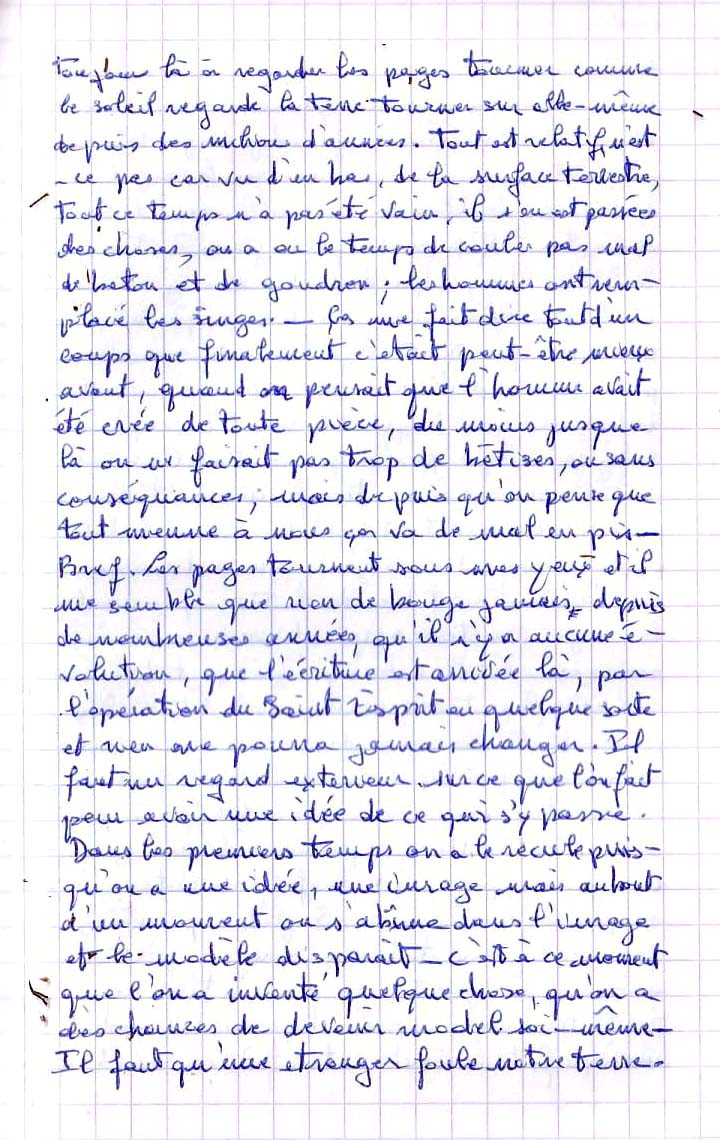 Toujour là à regarder les pages tourner comme
le soleil regarde la terre tourner sur elle-même
depuis des million d'années. Tout est relatif, n'est
-ce pas car vu d'en bas, de la surface terrestre,
tout ce temps n'a pas été vain, il s'en est passées
des choses, on a eu le temps de couler pas mal
de beton et de goudron ; les hommes ont rem-
placé les singes. — ça me fait dire tout d'un
coups que finalement c'était peut-être mieux
avant, quand on pensait que l'homme avait
été crée de toute pièce, du moins jusque
là on ne faisait pas trop de bêtises, ou sans
conséquances ; mais depuis qu'on pense que
tout meune à nous ça va de mal en pis —
Bref. Les pages tournent sous mes yeux et il
me semble que rien de bouge jamais, depuis
de nombreuses années, qu'il n'y a aucune é-
volution, que l'écriture est arrivée là, par
l'opération du Saint Esprit en quelque sorte
et rien ne pourra jamais changer. Il
faut un regard exterieur sur ce que l'on fait
pour avoir une idée de ce qui s'y passe.
Dans les premiers temps on a le recule puis-
qu'on a une idée, une image mais au bout
d'un moment on s'abîme dans l'image
et le modèle disparaît — c'est à ce moment
que l'on a inventé quelque chose, qu'on a
des chances de devenir model soi-même —
Il faut qu'une etranger foule notre terre.